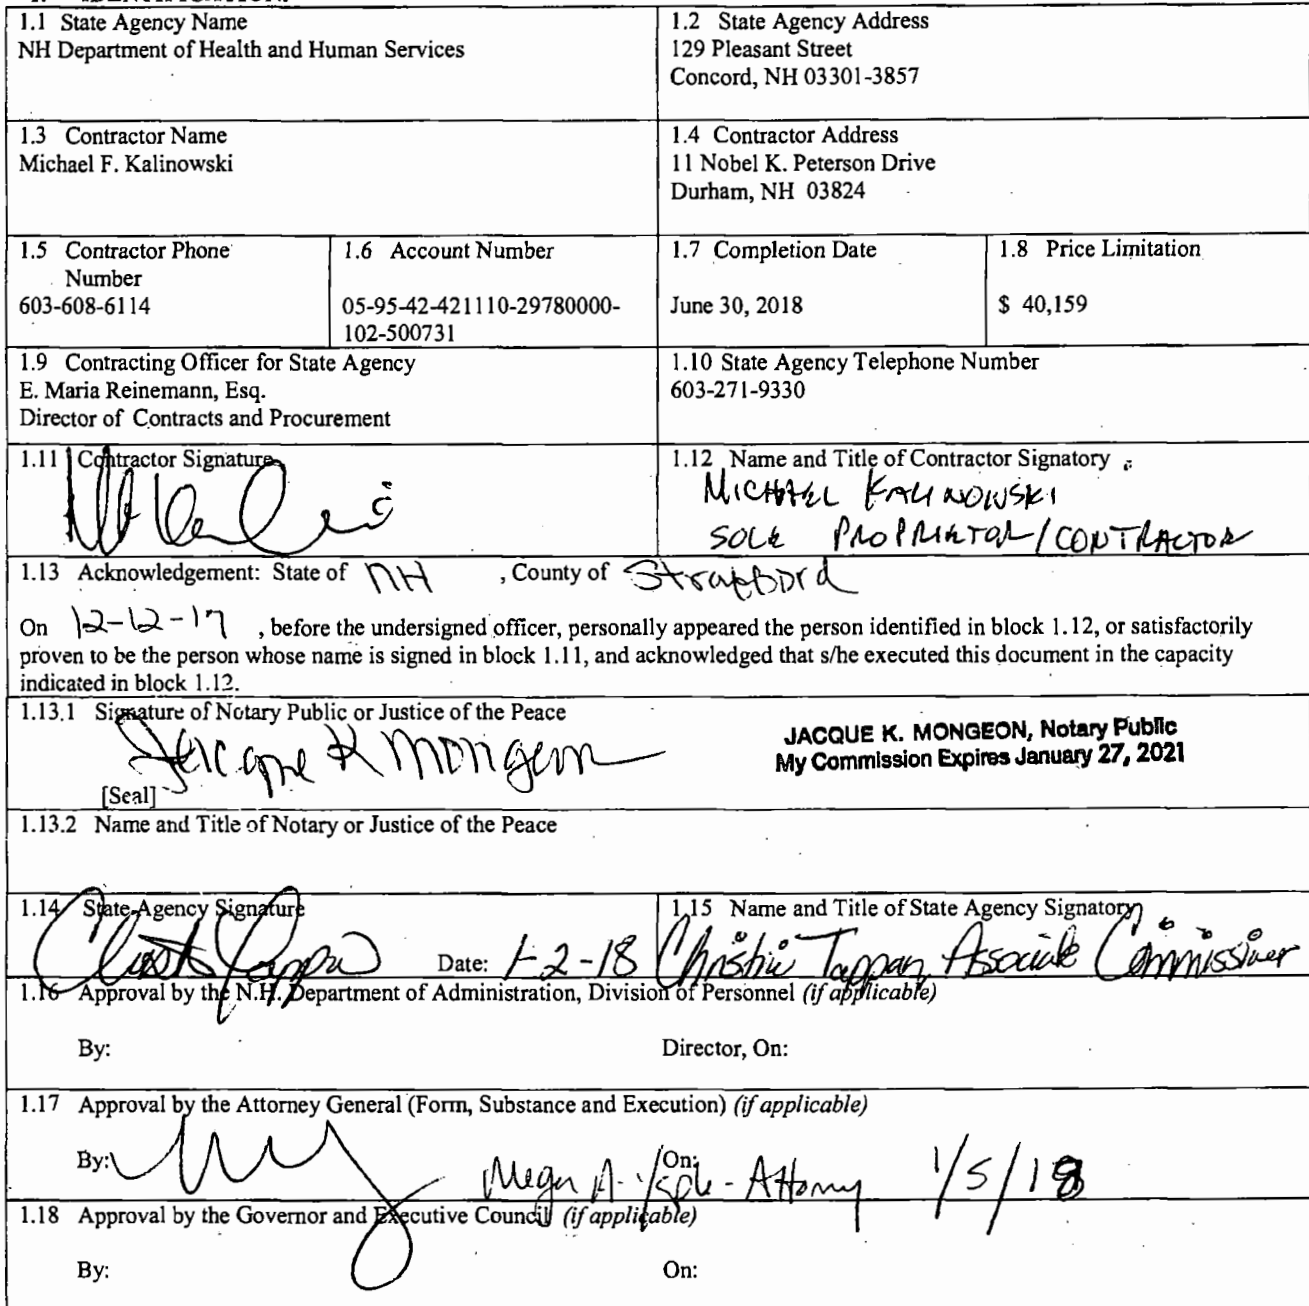 1.1 State Agency Name
NH Department of Health and Human Services
1.2 State Agency Address
129 Pleasant Street
Concord, NH 03301-3857
1.3 Contractor Name
Michael F. Kalinowski
1.4 Contractor Address
11 Nobel K. Peterson Drive
Durham, NH 03824
1.5 Contractor Phone
Number
603-608-6114
1.6 Account Number
05-95-42-421110-29780000-
102-500731
1.7 Completion Date
June 30, 2018
1.8 Price Limitation
$ 40,159
1.9 Contracting Officer for State Agency
E. Maria Reinemann, Esq.
Director of Contracts and Procurement
1.10 State Agency Telephone Number
603-271-9330
1.11 Contractor Signature
1.12 Name and Title of Contractor Signatory
MICHAEL KALINOWSKI
SOLE PROPRIETOR/CONTRACTOR
1.13 Acknowledgement: State of NH , County of Strafford
On 12-12-17 , before the undersigned officer, personally appeared the person identified in block 1.12, or satisfactorily
proven to be the person whose name is signed in block 1.11, and acknowledged that s/he executed this document in the capacity
indicated in block 1.12.
1.13.1 Signature of Notary Public or Justice of the Peace
Jacque K Mongeon
[Seal]
JACQUE K. MONGEON, Notary Public
My Commission Expires January 27, 2021
1.13.2 Name and Title of Notary or Justice of the Peace
1.14 State Agency Signature
Date: 1-2-18
1.15 Name and Title of State Agency Signatory
Christine Tappan Associate Commissioner
1.16 Approval by the N.H. Department of Administration, Division of Personnel (if applicable)
By:
Director, On:
1.17 Approval by the Attorney General (Form, Substance and Execution) (if applicable)
By:
On:
Megan A. - Attorney 1/5/18
1.18 Approval by the Governor and Executive Council (if applicable)
By:
On: